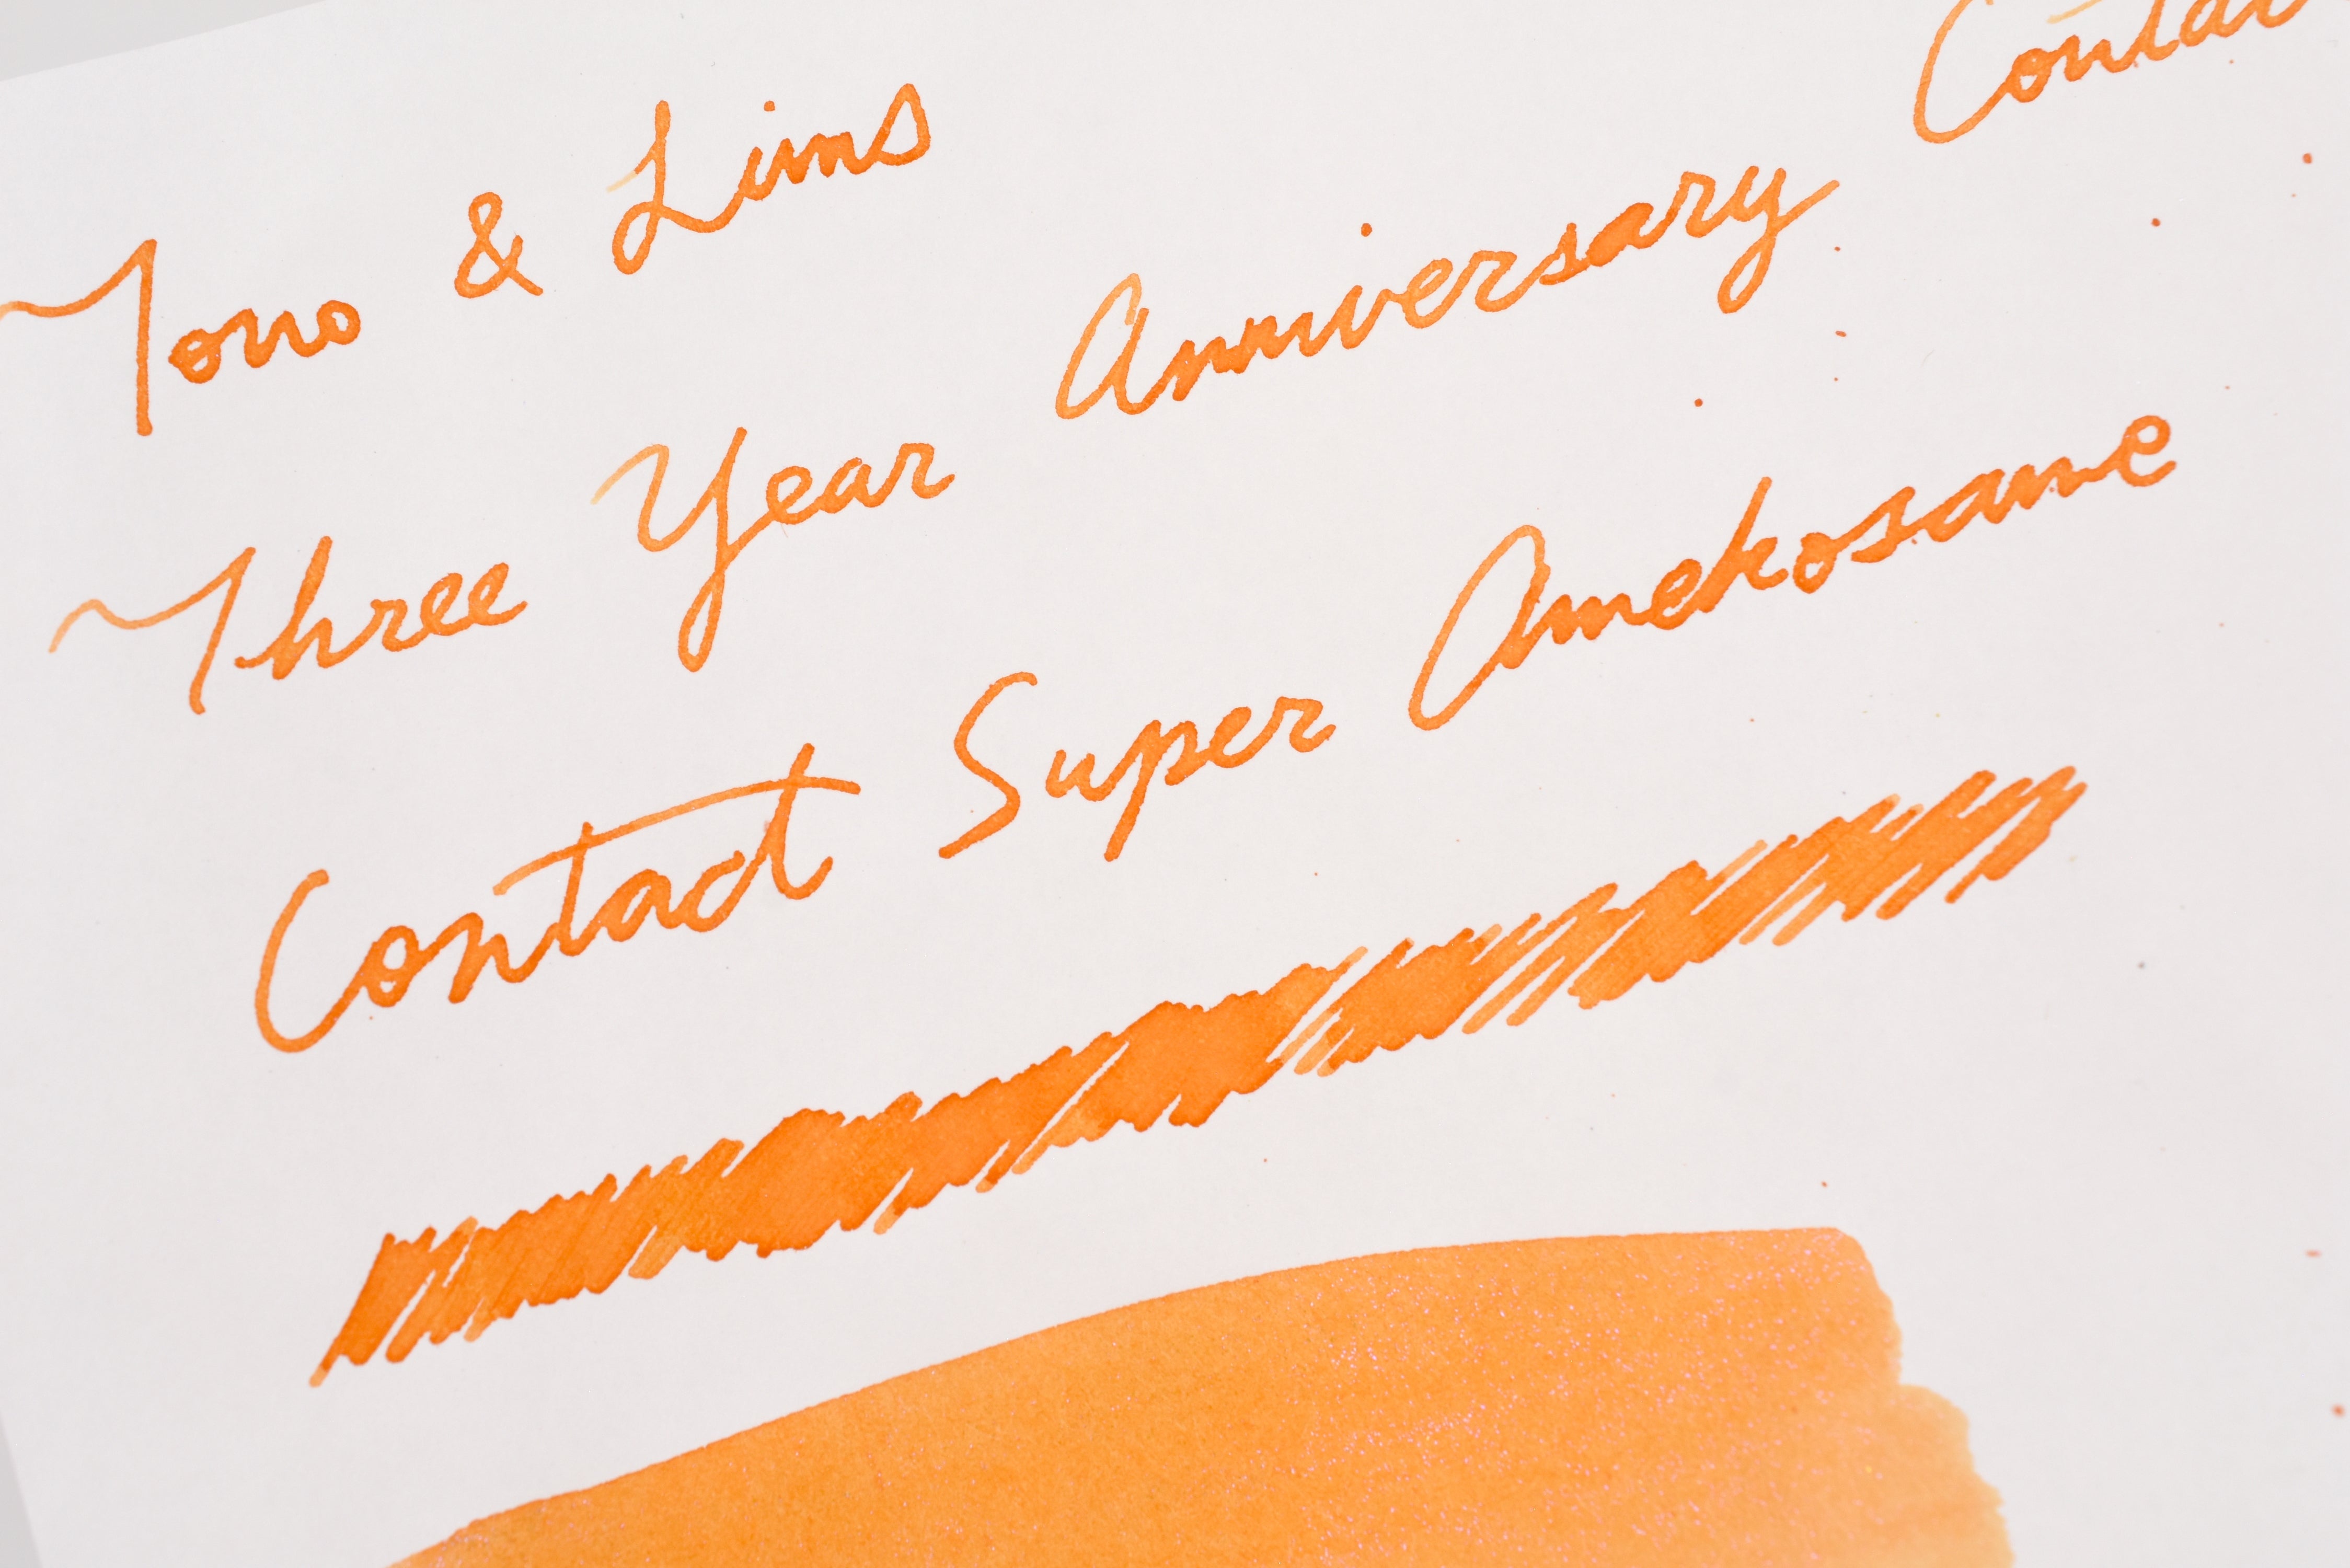 Tono & Lims
Three Year Anniversary
Contact Super Amekosame